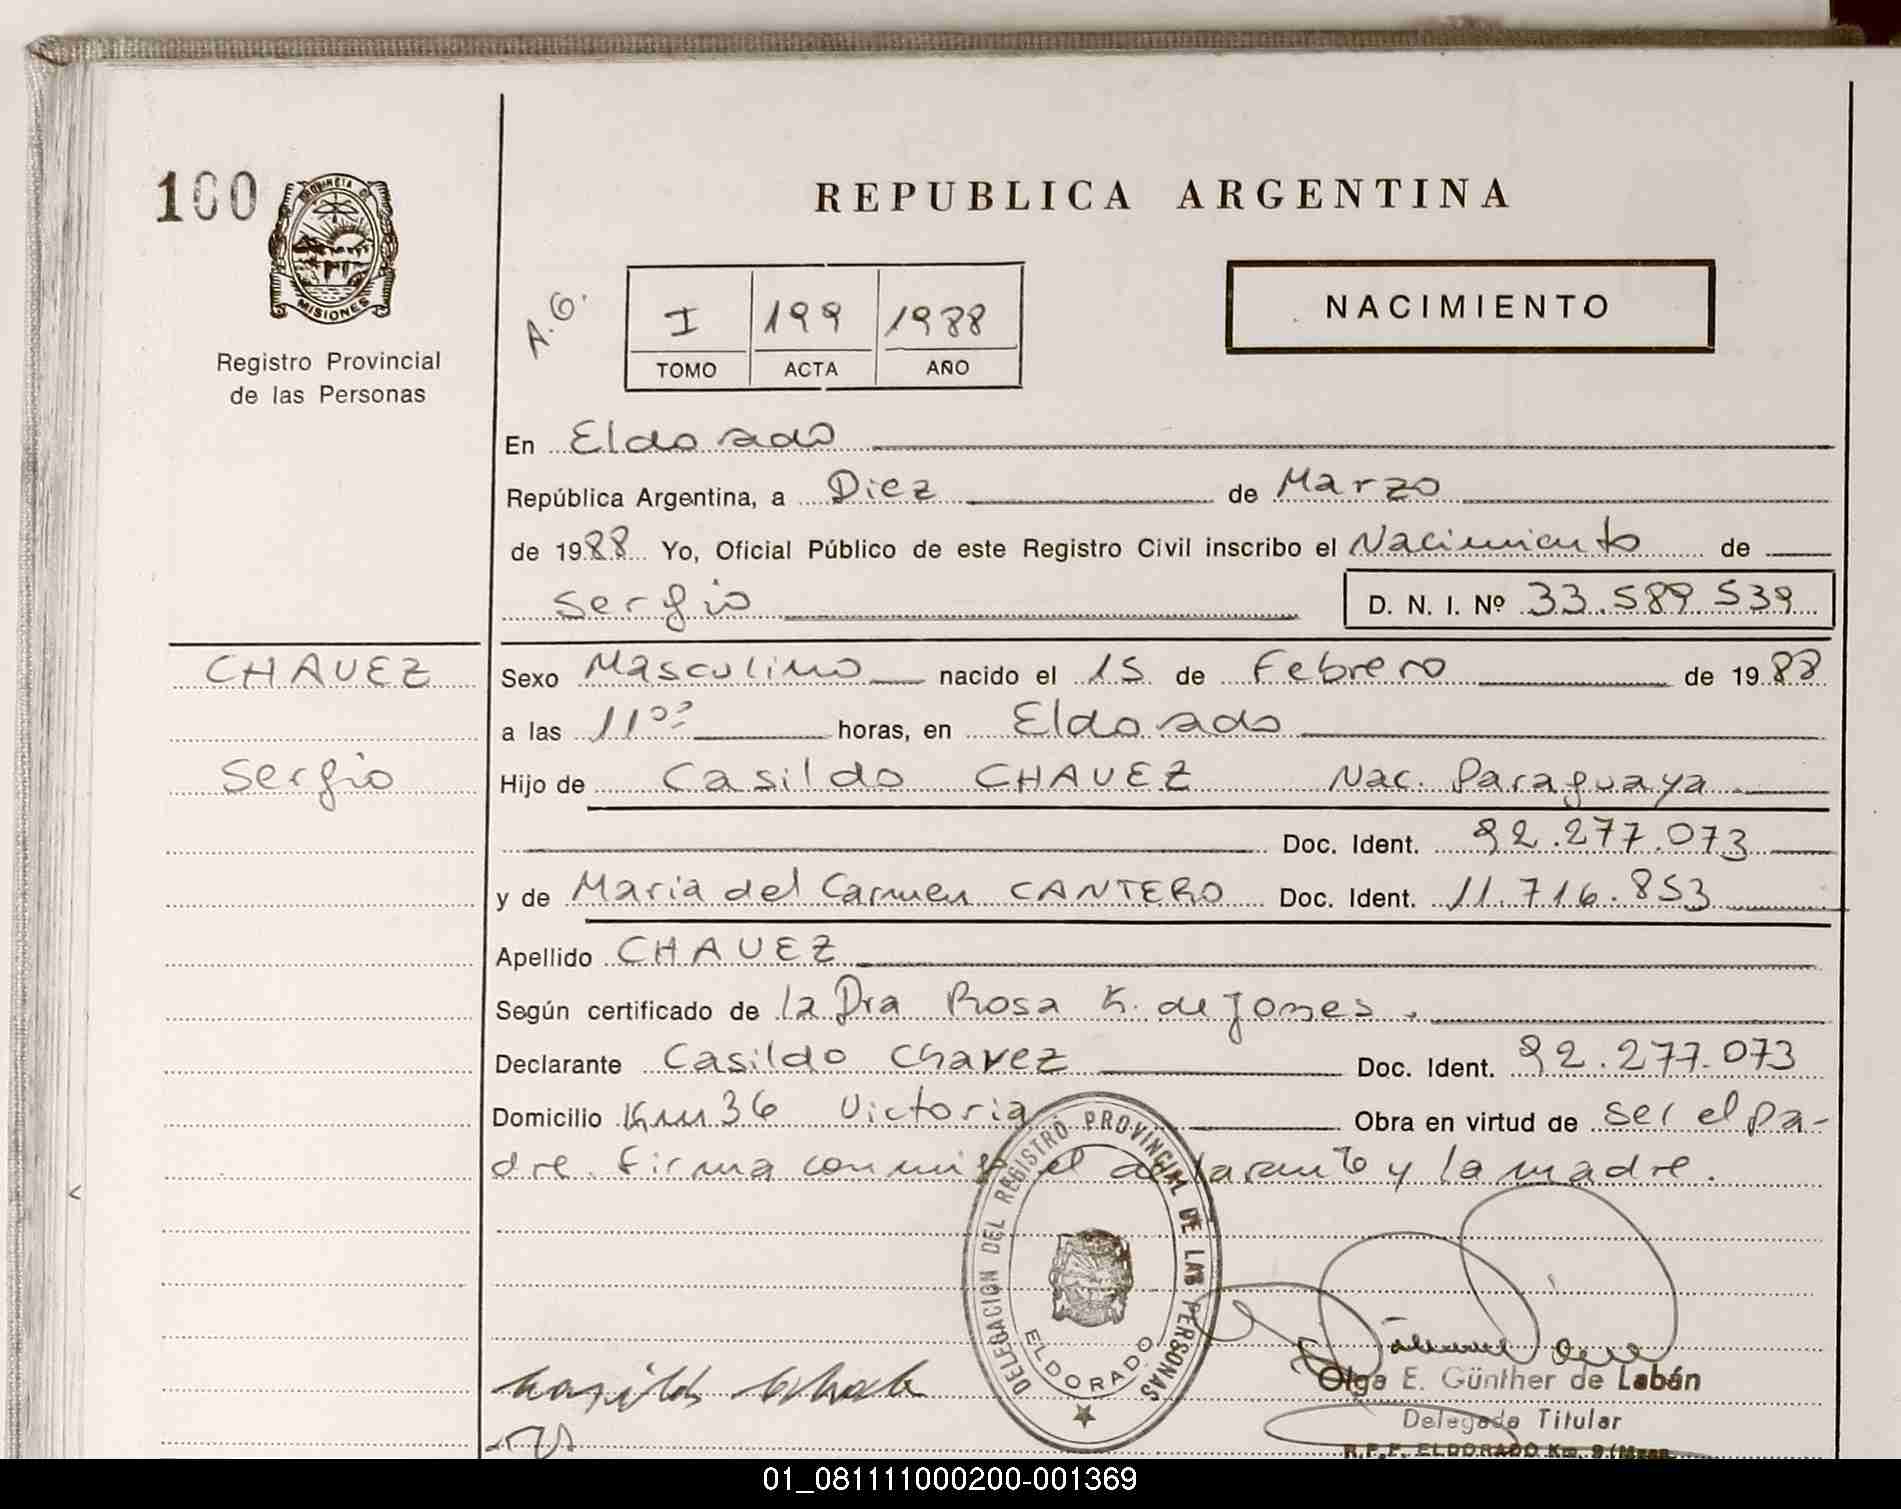 100
PROVINCIA DE
MISIONES
Registro Provincial
de las Personas
REPUBLICA ARGENTINA
A.G.
I 199 1988
TOMO ACTA AÑO
NACIMIENTO
En Eldorado
República Argentina, a Diez de Marzo
de 1988 Yo, Oficial Público de este Registro Civil inscribo el Nacimiento de
Sergio D. N. I. Nº 33.589.539
CHAVEZ
Sexo Masculino nacido el 15 de Febrero de 1988
a las 11 00 horas, en Eldorado
Sergio
Hijo de Casildo CHAVEZ Nac. Paraguaya
Doc. Ident. 92.277.073
y de Maria del Carmen CANTERO Doc. Ident. 11.716.853
Apellido CHAVEZ
Según certificado de la Dra Rosa K. de Jones.
Declarante Casildo Chavez Doc. Ident. 92.277.073
Domicilio Km 36 Victoria Obra en virtud de ser el pa-
dre. Firma conmigo el declarante y la madre.
DELEGACION DEL REGISTRO PROVINCIAL DE LAS PERSONAS
ELDORADO
Olga E. Günther de Labán
Delegada Titular
R.P.P. ELDORADO Km. 9 (Mnes
01_081111000200-001369